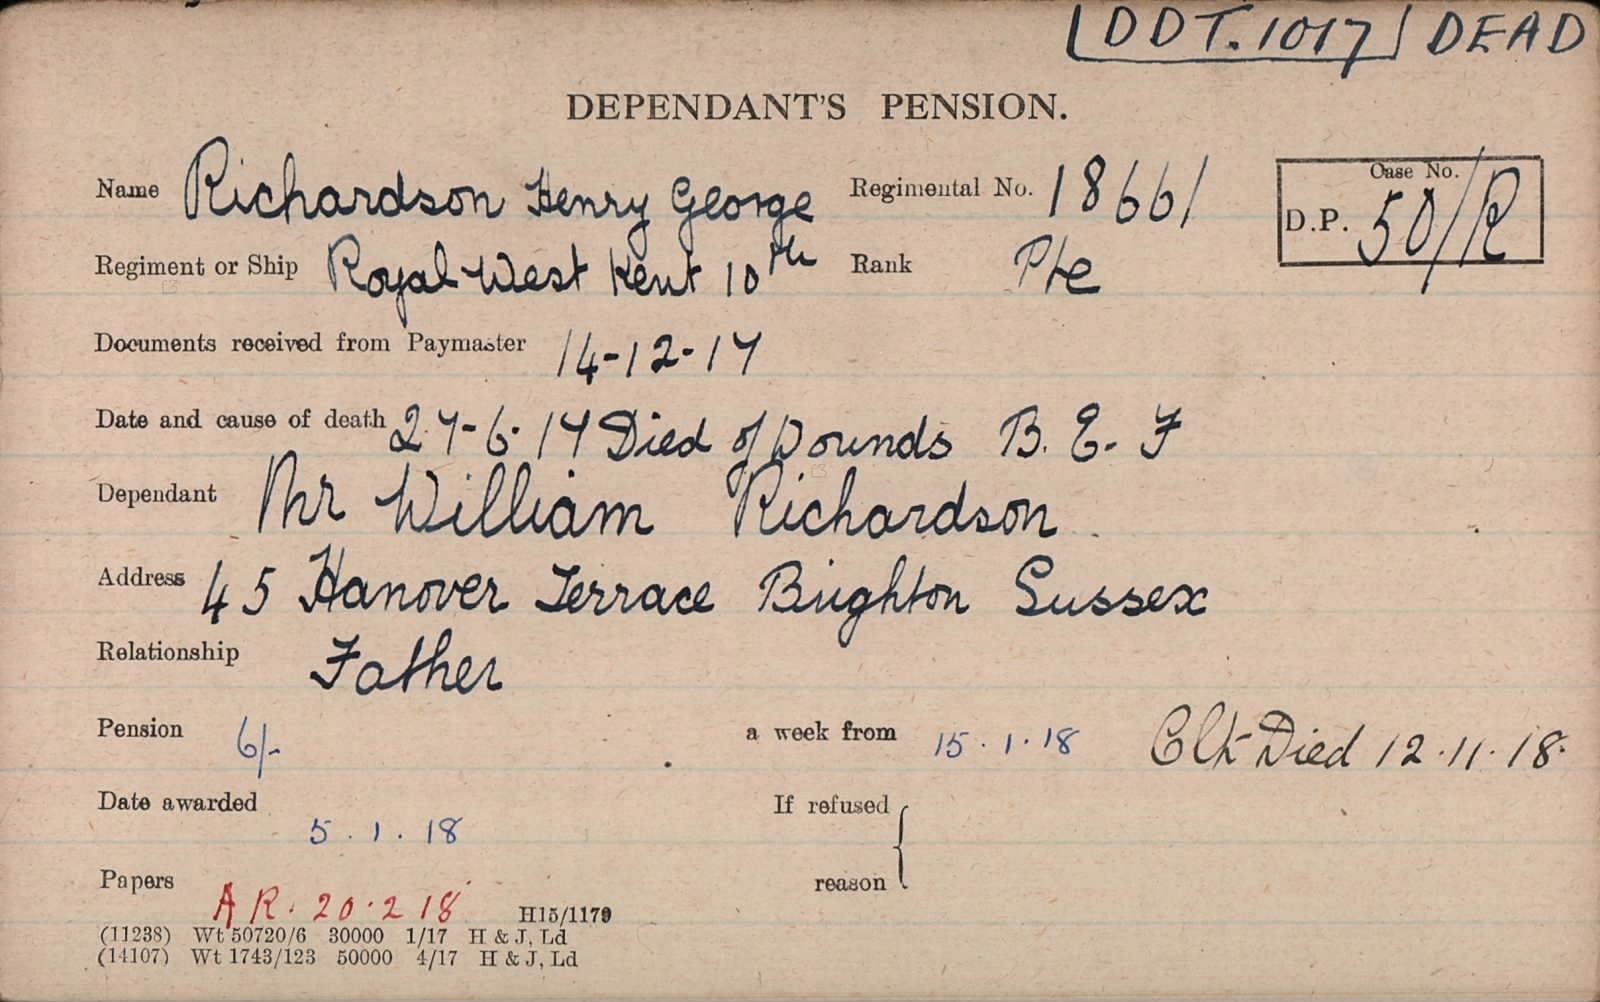 DDT. 1017 DEAD
DEPENDANT'S PENSION.
Name Richardson Henry George Regimental No. 18661 Case No. D.P. 50/R
Regiment or Ship Royal West Kent 10th Rank Pte
Documents received from Paymaster 14-12-17
Date and cause of death 27-6-17 Died of Wounds B. E. F
Dependant Mr William Richardson
Address 45 Hanover Terrace Brighton Sussex
Relationship Father
Pension 6/- a week from 15.1.18 Clt Died 12.11.18.
Date awarded 5.1.18 If refused
reason
Papers A R. 20.2 18 H15/1179
(11238) Wt 50720/6 30000 1/17 H & J, Ld
(14107) Wt 1743/123 50000 4/17 H & J, Ld